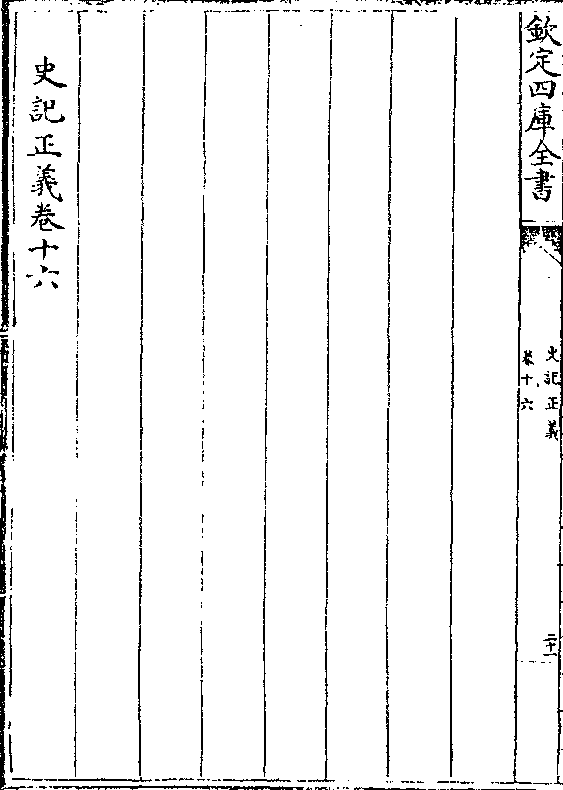 欽定四庫全書
史記正義
卷十六
二十一
史記正義卷十六